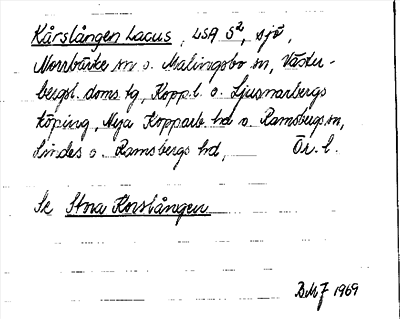 Kårslången Lacus, LSA S², sjö,
Norrbärke sn o. Malingsbo sn, Väster-
bergsl. doms.tg, Koppl. o. Ljusnarbergs
köping, Nya Kopparb. hd o. Ramsbergs sn,
Lindes o. Ramsbergs hd, Ör. l.
Se Stora Korslången
BMJ 1969